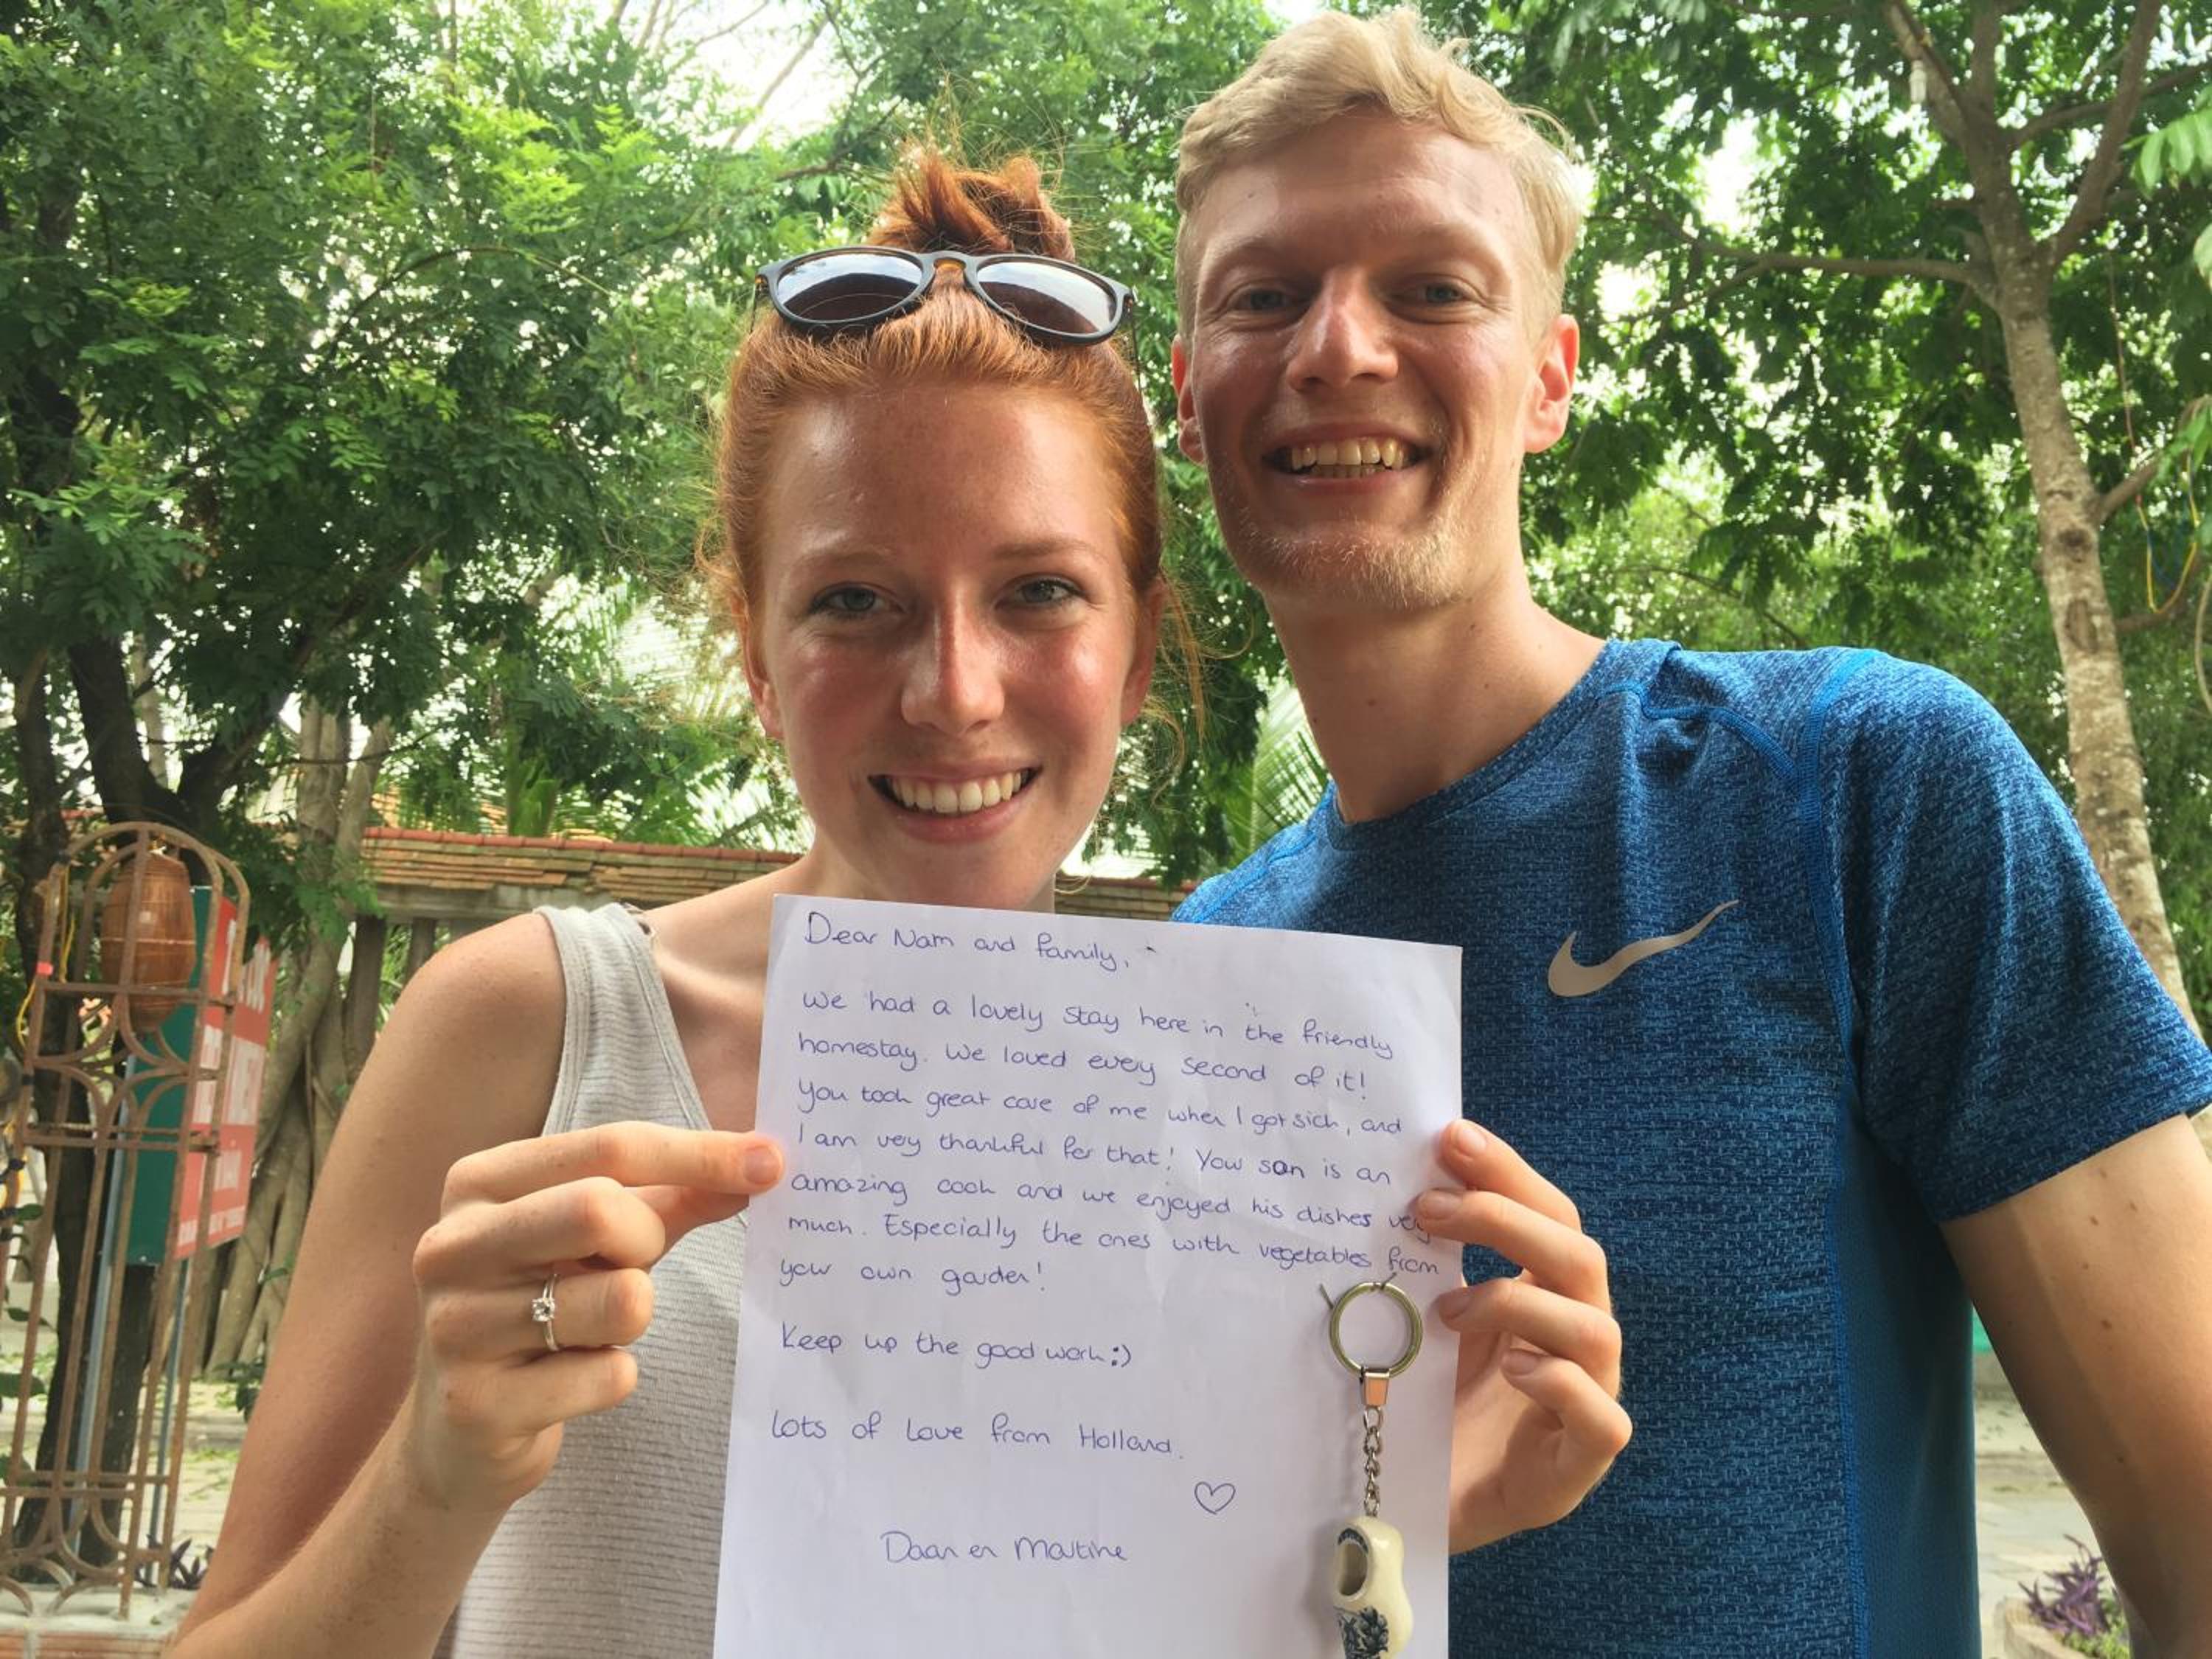 Dear Nam and family,
We had a lovely stay here in the friendly
homestay. We loved every second of it!
You took great care of me when I got sick, and
I am very thankful for that! Your son is an
amazing cook and we enjoyed his dishes very
much. Especially the ones with vegetables from
your own garden!
Keep up the good work :)
Lots of Love from Holland.
Daan en Martine